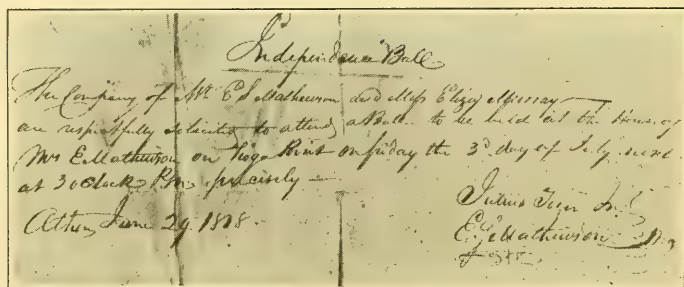 Independence Ball
The Company of Mr. E S Mathewson and Miss Eliza Murray
are respectfully solicited to attend a Ball to be held at the House of
Mrs E. Mathewson on Tioga Point on friday the 3d. day of July next
at 3 oClock P.M. precisely
Athens June 29. 1818
Julius Jr.
E. Mathewson